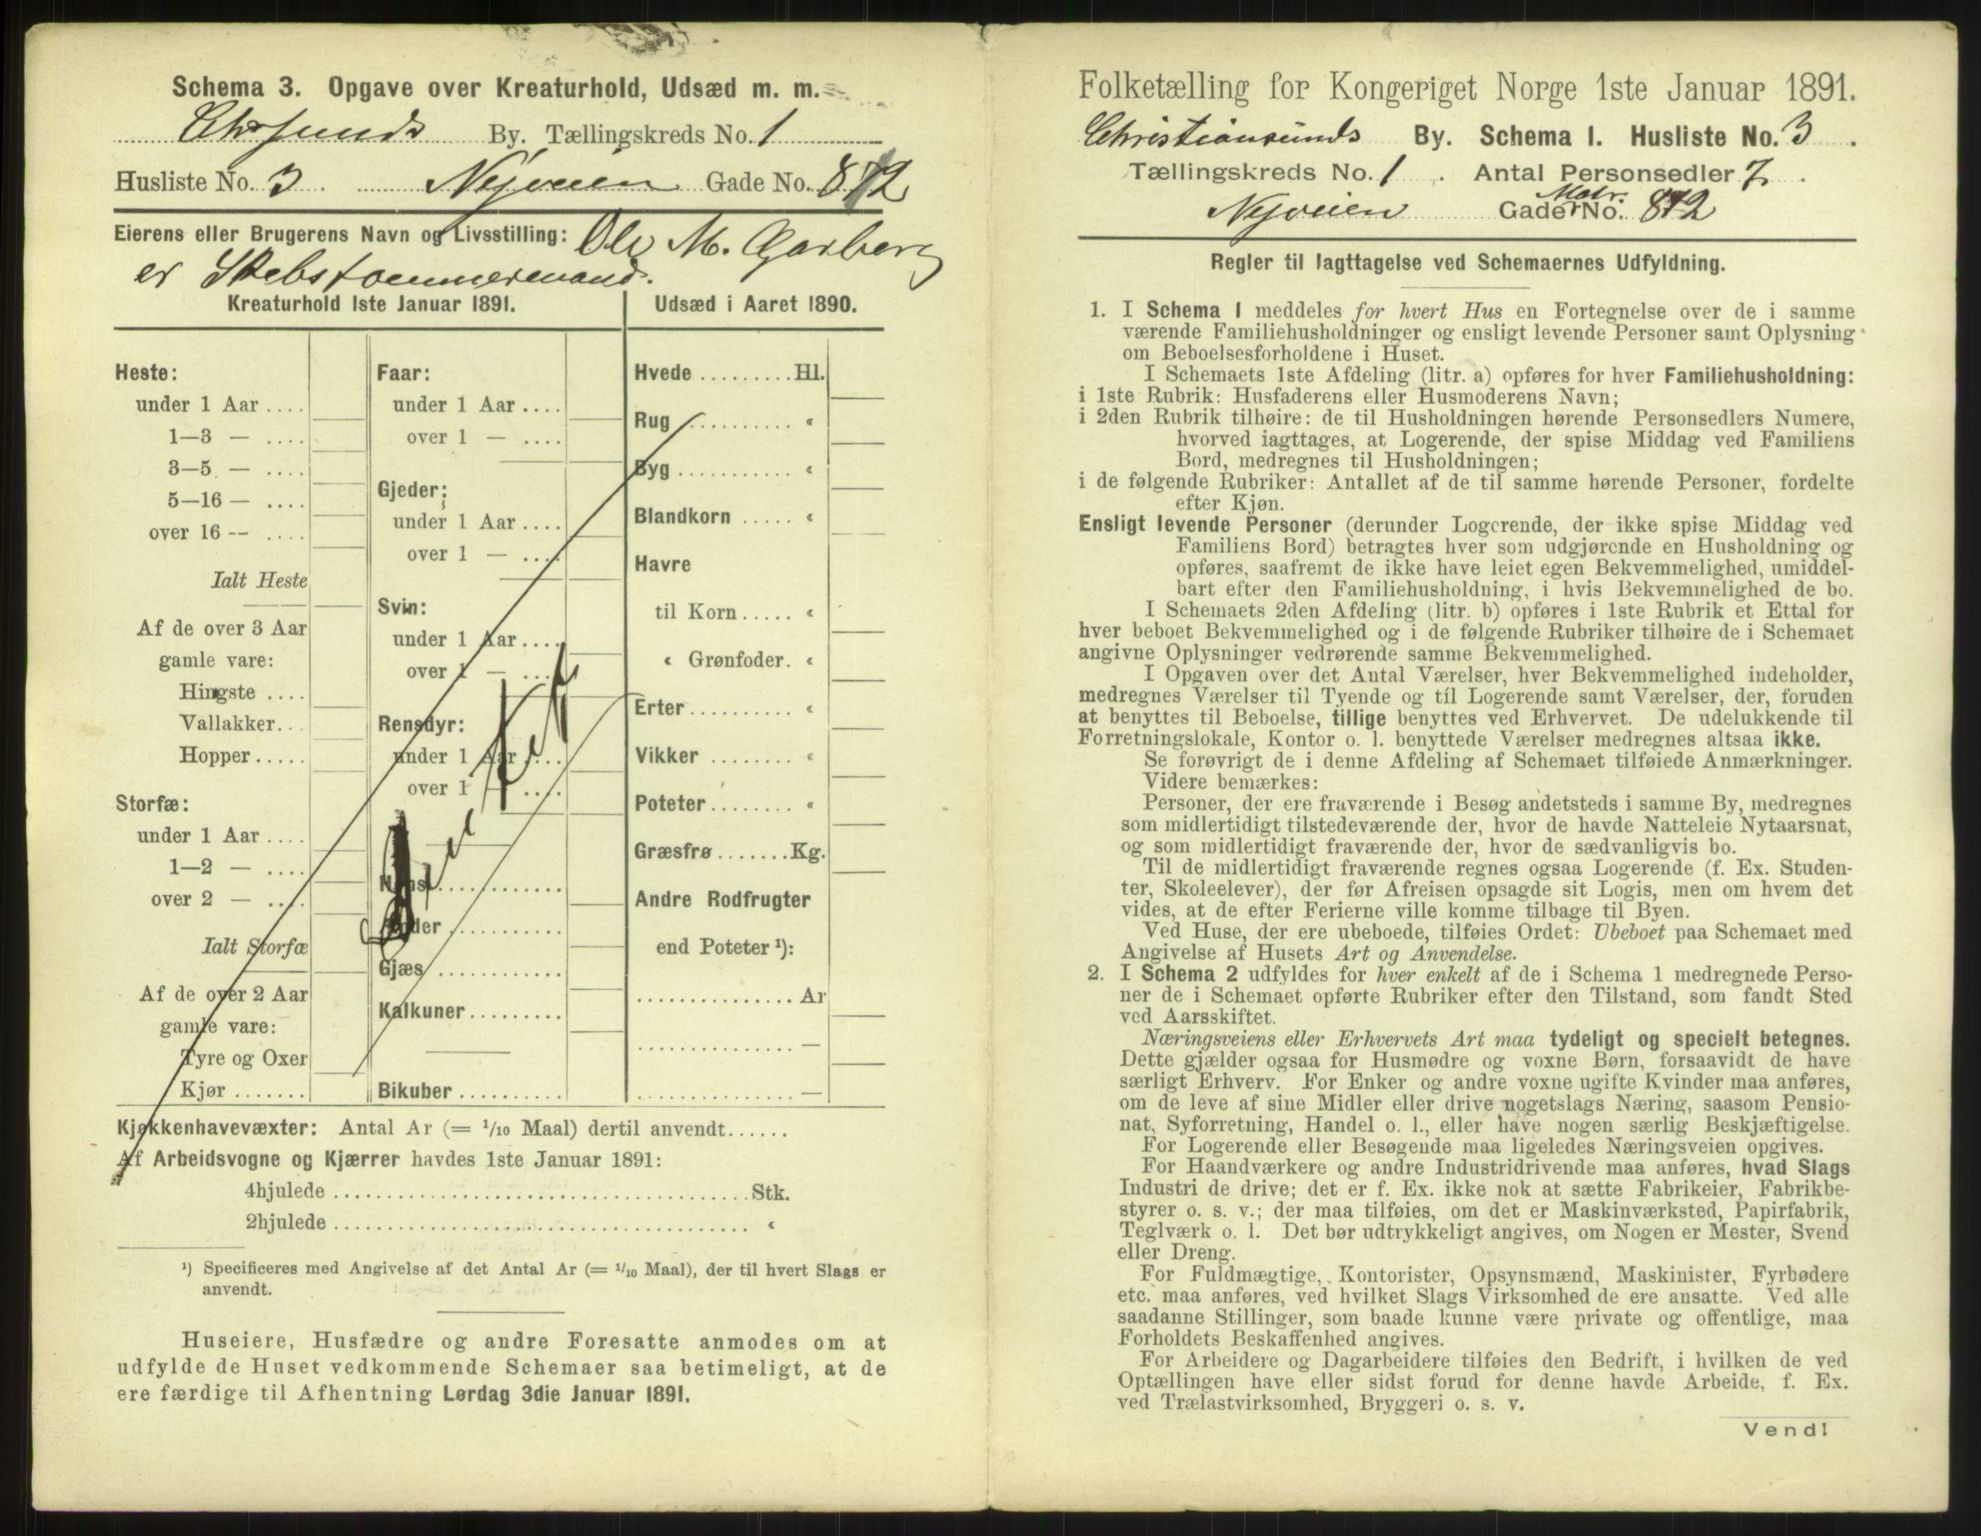 Schema 3. Opgave over Kreaturhold, Udsæd m. m.
Chrsunds By. Tællingskreds No. 1
Husliste No. 3 Nyveien Gade No. 812
Eierens eller Brugerens Navn og Livsstilling: Ole M. Garberg
er Skebstommermand.
Kreaturhold 1ste Januar 1891.
Heste:
under 1 Aar ....
1—3 — ....
3—5 — ....
5—16 — ....
over 16 — ....
Ialt Heste
Af de over 3 Aar
gamle vare:
Hingste ....
Vallakker...
Hopper.....
Storfæ:
under 1 Aar ....
1—2 — ....
over 2 — ....
Ialt Storfæ
Af de over 2 Aar
gamle vare:
Tyre og Oxer
Kjør .......
Faar:
under 1 Aar ....
over 1 — ....
Gjeder:
under 1 Aar ....
over 1 — ....
Svin:
under 1 Aar ....
over 1 — ....
Rensdyr:
under 1 Aar ....
over 1 — ....
Høns ............
Ænder ...........
Gjæs ............
Kalkuner.........
Bikuber ..........
Udsæd i Aaret 1890.
Hvede .........Hl.
Rug .......... “
Byg ........... “
Blandkorn ..... “
Havre
til Korn ..... “
“ Grønfoder. “
Erter .......... “
Vikker ........ “
Poteter ........ “
Græsfrø .......Kg.
Andre Rodfrugter
end Poteter ¹):
............... Ar
............... —
............... —
Kjøkkenhavevæxter: Antal Ar (= 1/10 Maal) dertil anvendt......
Af Arbeidsvogne og Kjærrer havdes 1ste Januar 1891:
4hjulede ........................................Stk.
2hjulede ........................................ “
¹) Specificeres med Angivelse af det Antal Ar (= 1/10 Maal), der til hvert Slags er
anvendt.
Huseiere, Husfædre og andre Foresatte anmodes om at
udfylde de Huset vedkommende Schemaer saa betimeligt, at de
ere færdige til Afhentning Lørdag 3die Januar 1891.
Folketælling for Kongeriget Norge 1ste Januar 1891.
Christiansunds By. Schema I. Husliste No. 3.
Tællingskreds No. 1. Antal Personsedler 7.
Nyveien Gade Matr. No. 812
Regler til Iagttagelse ved Schemaernes Udfyldning.
1. I Schema I meddeles for hvert Hus en Fortegnelse over de i samme
værende Familiehusholdninger og ensligt levende Personer samt Oplysning
om Beboelsesforholdene i Huset.
I Schemaets 1ste Afdeling (litr. a) opføres for hver Familiehusholdning:
i 1ste Rubrik: Husfaderens eller Husmoderens Navn;
i 2den Rubrik tilhøire: de til Husholdningen hørende Personsedlers Numere,
hvorved iagttages, at Logerende, der spise Middag ved Familiens
Bord, medregnes til Husholdningen;
i de følgende Rubriker: Antallet af de til samme hørende Personer, fordelte
efter Kjøn.
Ensligt levende Personer (derunder Logerende, der ikke spise Middag ved
Familiens Bord) betragtes hver som udgjørende en Husholdning og
opføres, saafremt de ikke have leiet egen Bekvemmelighed, umiddel-
bart efter den Familiehusholdning, i hvis Bekvemmelighed de bo.
I Schemaets 2den Afdeling (litr. b) opføres i 1ste Rubrik et Ettal for
hver beboet Bekvemmelighed og i de følgende Rubriker tilhøire de i Schemaet
angivne Oplysninger vedrørende samme Bekvemmelighed.
I Opgaven over det Antal Værelser, hver Bekvemmelighed indeholder,
medregnes Værelser til Tyende og til Logerende samt Værelser, der, foruden
at benyttes til Beboelse, tillige benyttes ved Erhvervet. De udelukkende til
Forretningslokale, Kontor o. l. benyttede Værelser medregnes altsaa ikke.
Se forøvrigt de i denne Afdeling af Schemaet tilføiede Anmærkninger.
Videre bemærkes:
Personer, der ere fraværende i Besøg andetsteds i samme By, medregnes
som midlertidigt tilstedeværende der, hvor de havde Natteleie Nytaarsnat,
og som midlertidigt fraværende der, hvor de sædvanligvis bo.
Til de midlertidigt fraværende regnes ogsaa Logerende (f. Ex. Studen-
ter, Skoleelever), der før Afreisen opsagde sit Logis, men om hvem det
vides, at de efter Ferierne ville komme tilbage til Byen.
Ved Huse, der ere ubeboede, tilføies Ordet: Ubeboet paa Schemaet med
Angivelse af Husets Art og Anvendelse.
2. I Schema 2 udfyldes for hver enkelt af de i Schema 1 medregnede Perso-
ner de i Schemaet opførte Rubriker efter den Tilstand, som fandt Sted
ved Aarsskiftet.
Næringsveiens eller Erhvervets Art maa tydeligt og specielt betegnes.
Dette gjælder ogsaa for Husmødre og voxne Børn, forsaavidt de have
særligt Erhverv. For Enker og andre voxne ugifte Kvinder maa anføres,
om de leve af sine Midler eller drive nogetslags Næring, saasom Pensio-
nat, Syforretning, Handel o. l., eller have nogen særlig Beskjæftigelse.
For Logerende eller Besøgende maa ligeledes Næringsveien opgives.
For Haandværkere og andre Industridrivende maa anføres, hvad Slags
Industri de drive; det er f. Ex. ikke nok at sætte Fabrikeier, Fabrikbe-
styrer o. s. v.; der maa tilføies, om det er Maskinværksted, Papirfabrik,
Teglværk o. l. Det bør udtrykkeligt angives, om Nogen er Mester, Svend
eller Dreng.
For Fuldmægtige, Kontorister, Opsynsmænd, Maskinister, Fyrbødere
etc. maa anføres, ved hvilket Slags Virksomhed de ere ansatte. Ved alle
saadanne Stillinger, som baade kunne være private og offentlige, maa
Forholdets Beskaffenhed angives.
For Arbeidere og Dagarbeidere tilføies den Bedrift, i hvilken de ved
Optællingen have eller sidst forud for denne havde Arbeide, f. Ex.
ved Trælastvirksomhed, Bryggeri o. s. v.
Vend!